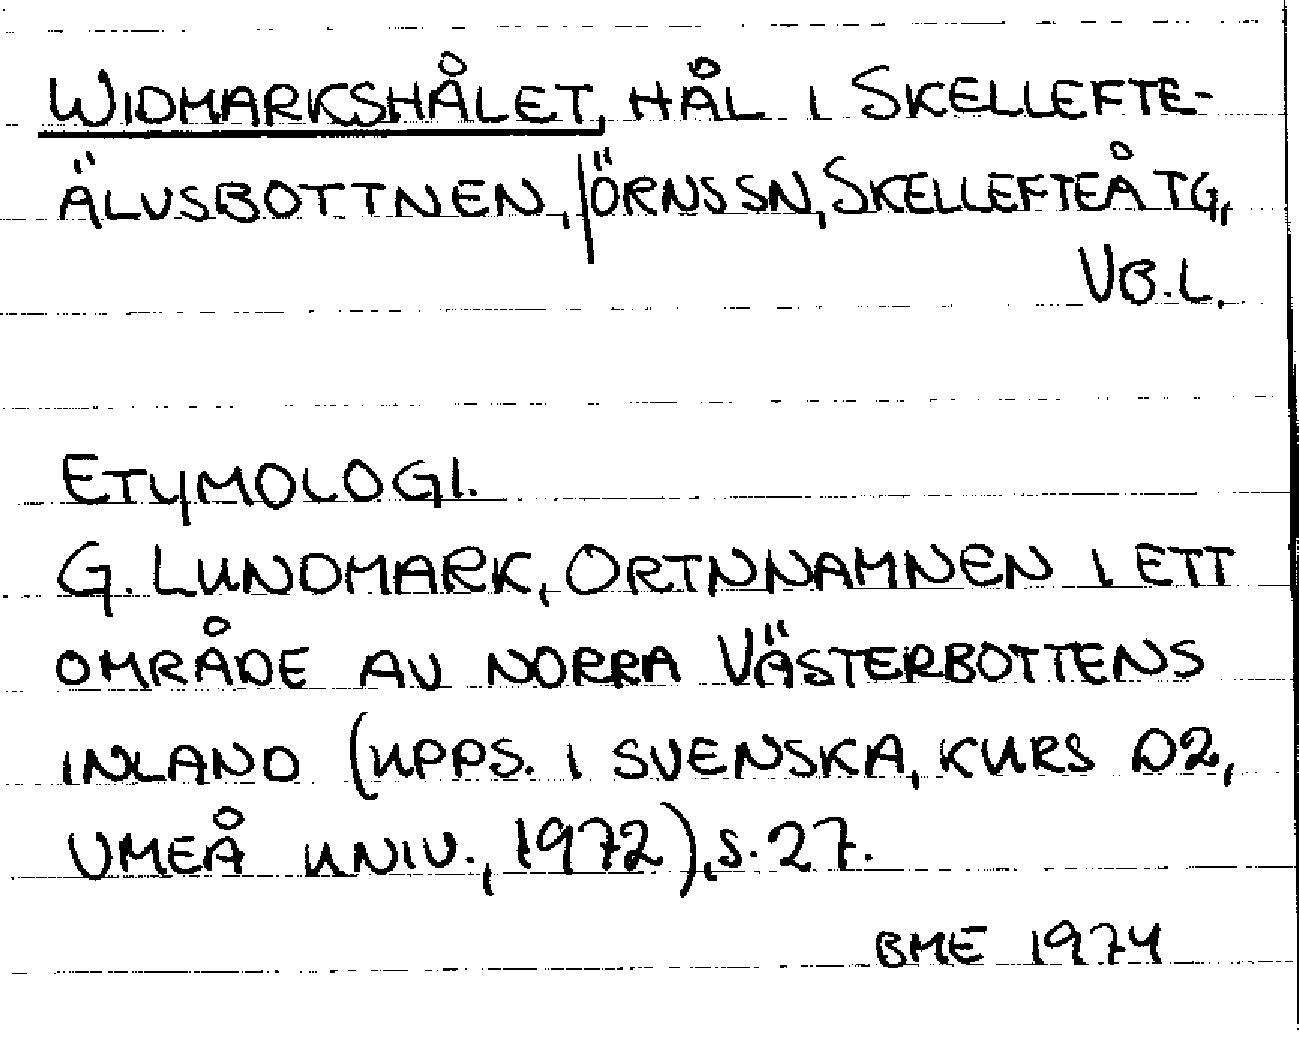 WIDMARKSHÅLET, HÅL I SKELLEFTE-
ÄLVSBOTTNEN, | ÖRNS SN, SKELLEFTEÅ TG,
VB.L.
ETYMOLOGI.
G. LUNDMARK, ORTNNAMNEN I ETT
OMRÅDE AV NORRA VÄSTERBOTTENS
INLAND (UPPS. I SVENSKA, KURS D2,
UMEÅ UNIV., 1972), S. 27.
BME 1974